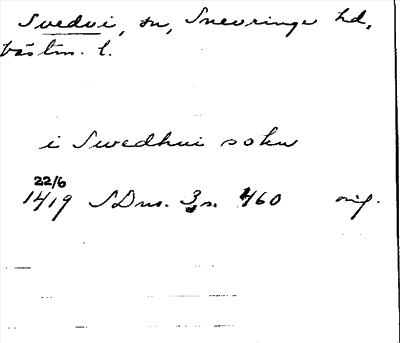 Svedvi, sn, Snevringe hd,
Västm. l.
i Swedhui sokn
22/6
1419 SDns. 3, s. 460 orig.